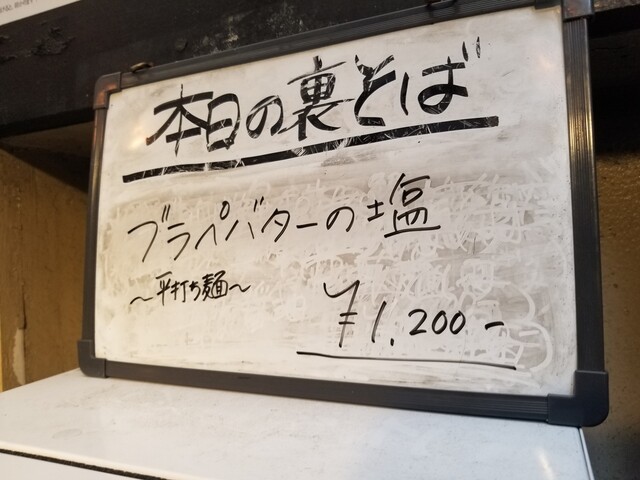 本日の裏そば
ブラペバターの塩
～平打ち麺～
¥1,200-